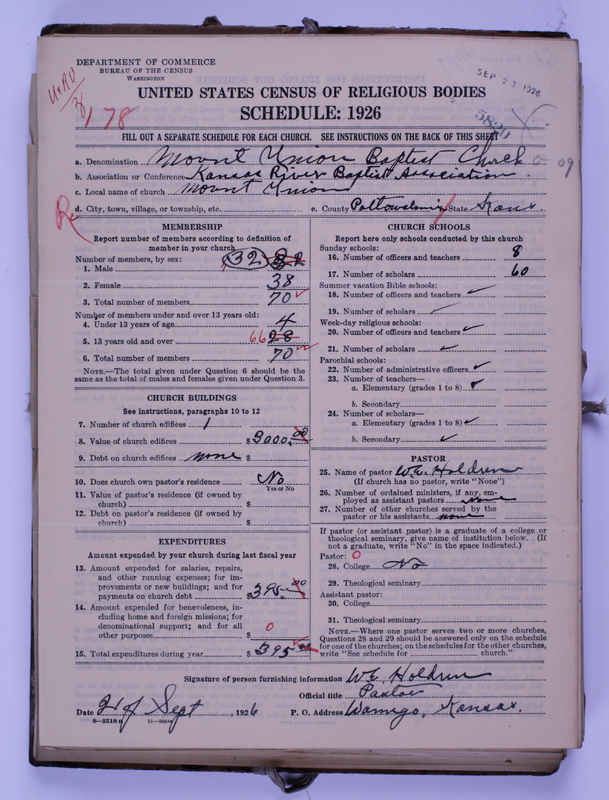 DEPARTMENT OF COMMERCE
BUREAU OF THE CENSUS
WASHINGTON
SEP 23 1926
178
UNITED STATES CENSUS OF RELIGIOUS BODIES
SCHEDULE: 1926
FILL OUT A SEPARATE SCHEDULE FOR EACH CHURCH. SEE INSTRUCTIONS ON THE BACK OF THIS SHEET
a. Denomination Mount Union Baptist Church 09
b. Association or Conference Kansas River Baptist Association.
c. Local name of church Mount Union
d. City, town, village, or township, etc. e. County Pottowatomie State Kans.
MEMBERSHIP
Report number of members according to definition of member in your church
Number of members, by sex:
1. Male 32
2. Female 38
3. Total number of members 70
Number of members under and over 13 years old:
4. Under 13 years of age 4
5. 13 years old and over 66 28
6. Total number of members 70
NOTE.—The total given under Question 6 should be the same as the total of males and females given under Question 3.
CHURCH BUILDINGS
See instructions, paragraphs 10 to 12
7. Number of church edifices 1
8. Value of church edifices $ 3000.00
9. Debt on church edifices none $
10. Does church own pastor's residence No
Yes or No
11. Value of pastor's residence (if owned by church) $
12. Debt on pastor's residence (if owned by church) $
EXPENDITURES
Amount expended by your church during last fiscal year
13. Amount expended for salaries, repairs, and other running expenses; for improvements or new buildings; and for payments on church debt $ 395.00
14. Amount expended for benevolences, including home and foreign missions; for denominational support; and for all other purposes $ 0
15. Total expenditures during year $ 395.00
CHURCH SCHOOLS
Report here only schools conducted by this church
Sunday schools:
16. Number of officers and teachers 8
17. Number of scholars 60
Summer vacation Bible schools:
18. Number of officers and teachers
19. Number of scholars
Week-day religious schools:
20. Number of officers and teachers
21. Number of scholars
Parochial schools:
22. Number of administrative officers
23. Number of teachers—
a. Elementary (grades 1 to 8)
b. Secondary
24. Number of scholars—
a. Elementary (grades 1 to 8)
b. Secondary
PASTOR
25. Name of pastor W.E. Holdren
(If church has no pastor, write "None")
26. Number of ordained ministers, if any, employed as assistant pastors None
27. Number of other churches served by the pastor or his assistants none
If pastor (or assistant pastor) is a graduate of a college or theological seminary, give name of institution below. (If not a graduate, write "No" in the space indicated.)
Pastor: 0
28. College No
29. Theological seminary
Assistant pastor:
30. College
31. Theological seminary
NOTE.—Where one pastor serves two or more churches, Questions 28 and 29 should be answered only on the schedule for one of the churches; on the schedules for the other churches, write "See schedule for church."
Signature of person furnishing information W.E. Holdren
Official title Pastor
Date 21 of Sept, 1926 P. O. Address Wamego, Kansas.
8—5518 a